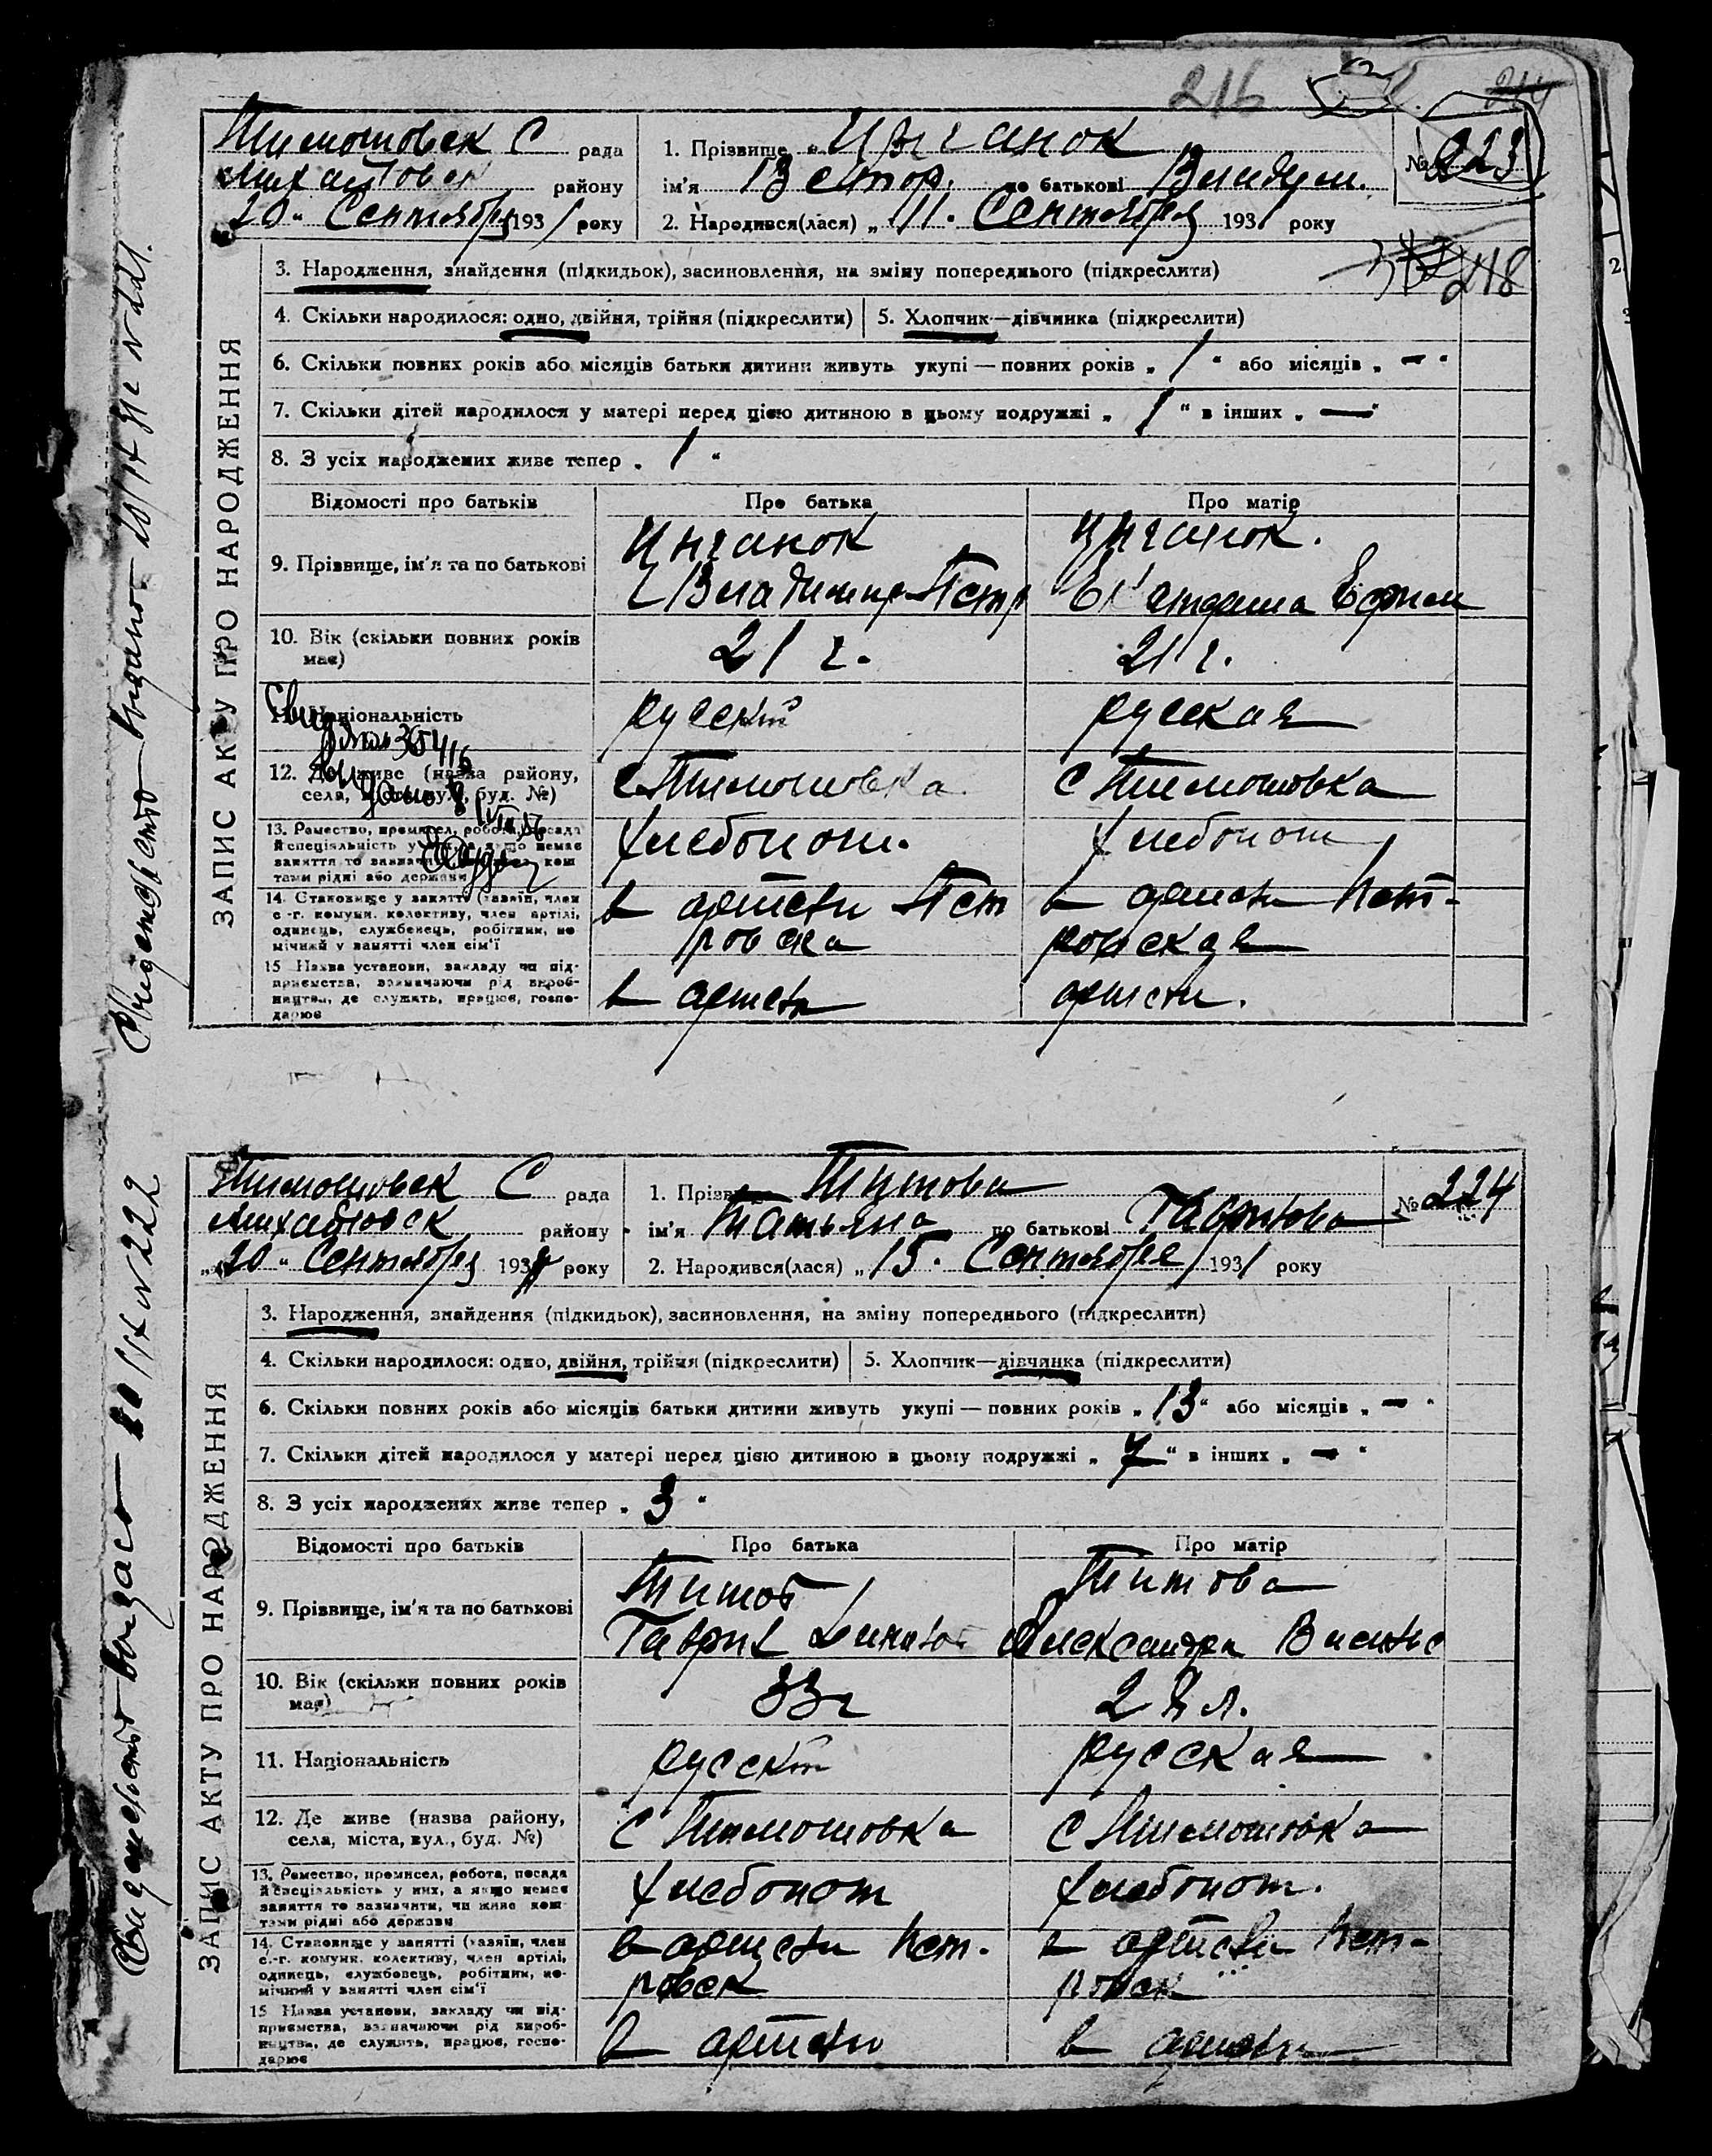 216
Тимошовск С рада
Михайловск району
"20" Сентября 1931 року
1. Прізвище Цыганок
ім'я Виктор. по батькові Владим.
2. Народився(лася) „11" Сентября 1931 року
№ 223
218
ЗАПИС АКТУ ПРО НАРОДЖЕННЯ
3. Народження, знайдення (підкидьок), засиновлення, на зміну попереднього (підкреслити)
4. Скільки народилося: одно, двійня, трійня (підкреслити) 5. Хлопчик—дівчинка (підкреслити)
6. Скільки повних років або місяців батьки дитини живуть укупі — повних років „ 1 " або місяців „ — "
7. Скільки дітей народилося у матері перед цією дитиною в цьому подружжі „ 1 " в інших „ — "
8. З усіх народжених живе тепер „ 1 "
Відомості про батьків Про батька Про матір
9. Прізвище, ім'я та по батькові
Цыганок
Владимир Петр
Цыганок.
Екатерина Ефим
10. Вік (скільки повних років має)
21 г.
21 г.
11. Національність
русский
русская
12. Де живе (назва району, села, міста, вул., буд. №)
С Тимошовка
С Тимошовка
13. Ремество, промисел, робота, посада й спеціальність у них, а якщо немає заняття то зазначити, чи живе коштами рідні або держави
хлебопаш.
хлебопаш
14. Становище у занятті (хазяїн, член с.-г. комуни, колективу, член артілі, одинець, службовець, робітник, помічний у занятті член сім'ї
в артели Пет
ровска
в артели Пет-
ровская
15 Назва установи, закладу чи підприємства, зазначаючи рід виробництва, де служить, працює, господарює
в артели
артели.
Свидетельство выдано 20/IX 31 г № 221.
Тимошовск С рада
Михайловск району
„20" Сентября 1931 року
1. Прізвище Титова
ім'я Татьяна по батькові Гавриловна
2. Народився(лася) „15" Сентября 1931 року
№ 224
ЗАПИС АКТУ ПРО НАРОДЖЕННЯ
3. Народження, знайдення (підкидьок), засиновлення, на зміну попереднього (підкреслити)
4. Скільки народилося: одно, двійня, трійня (підкреслити) 5. Хлопчик—дівчинка (підкреслити)
6. Скільки повних років або місяців батьки дитини живуть укупі — повних років „ 13 " або місяців „ — "
7. Скільки дітей народилося у матері перед цією дитиною в цьому подружжі „ 7 " в інших „ — "
8. З усіх народжених живе тепер „ 3 "
Відомості про батьків Про батька Про матір
9. Прізвище, ім'я та по батькові
Титов
Гаврил
Титова
Александра Василье
10. Вік (скільки повних років має)
33 г
л.
11. Національність
русский
русская
12. Де живе (назва району, села, міста, вул., буд. №)
С Тимошовка
С Тимошовка
13. Ремество, промисел, робота, посада й спеціальність у них, а якщо немає заняття то зазначити, чи живе коштами рідні або держави
хлебопаш
хлебопаш.
14. Становище у занятті (хазяїн, член с.-г. комуни, колективу, член артілі, одинець, службовець, робітник, помічний у занятті член сім'ї
в артели Пет.
ровск
в артели Пет-
ровск
15 Назва установи, закладу чи підприємства, зазначаючи рід виробництва, де служить, працює, господарює
в артели
в артели
Свидетельство выдано 20/IX № 222